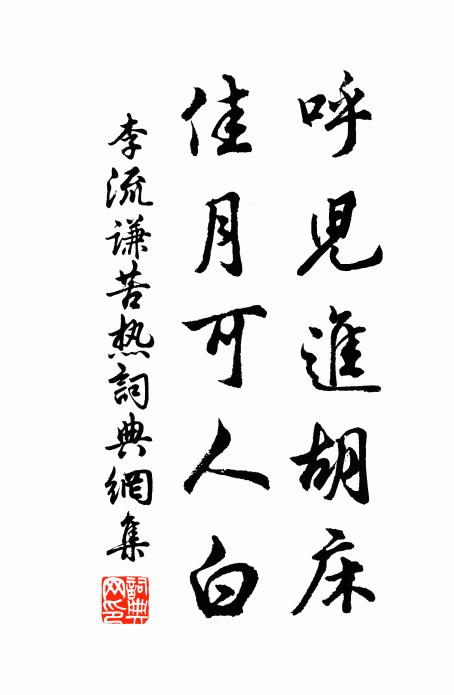 呼児進胡床
佳月可人白
李流謙苦热詞典網集
詞典網印